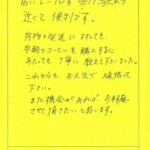 近くて 便利です。
荷物の発送に対しても、
早朝のコーヒーを購入するに
あたっても 丁寧に教え下さいました。
これからも お元気で 頑張って
下さい。
また機会があれば お邪魔
させて頂きたいと思います。